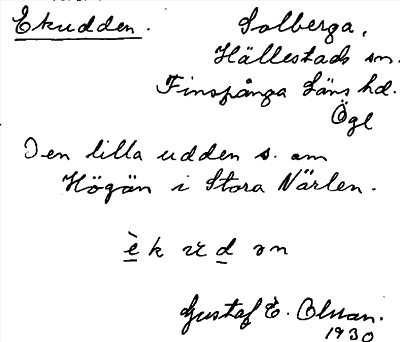 Ekudden. Solberga,
Hällestads sn.
Finspånga läns hd.
Ögl
Den lilla udden s. om
Högön i Stora Närlen.
è k u d ə n
Gustaf E. Olsson.
1930